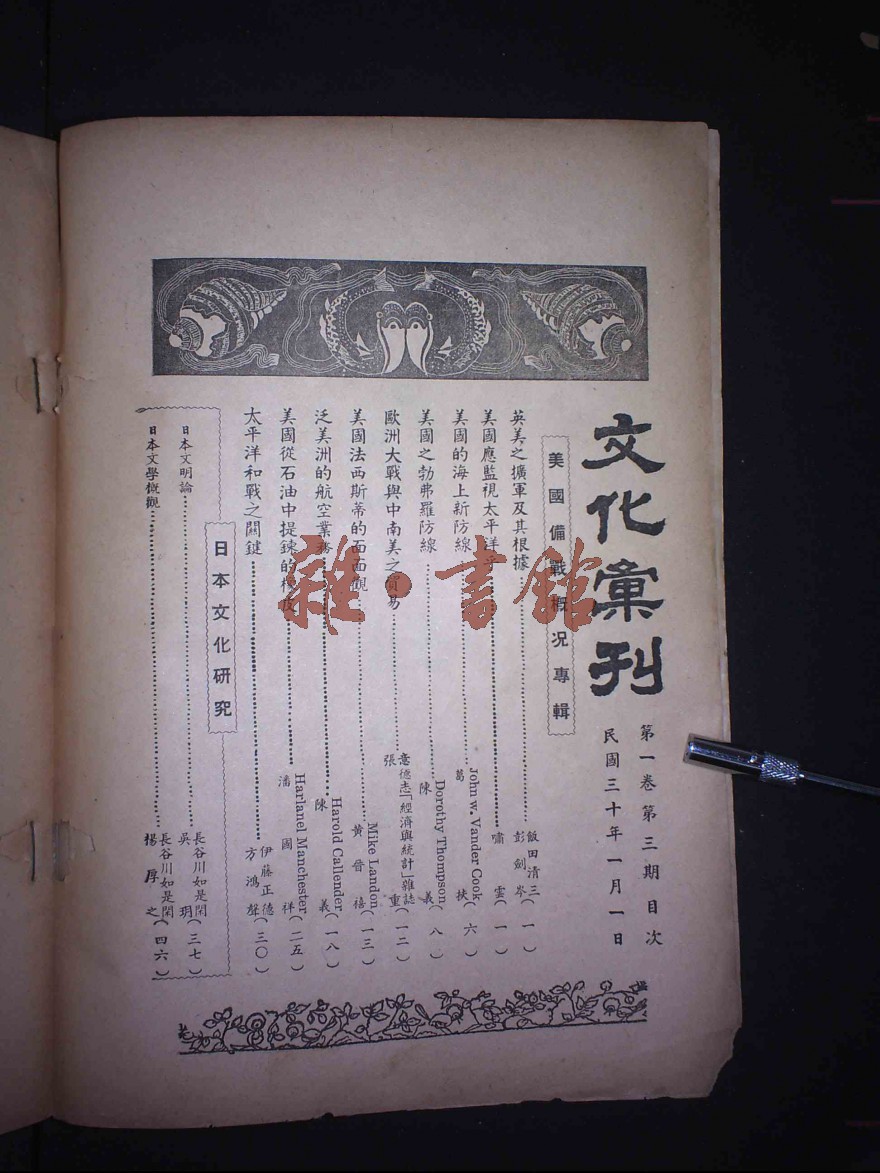 文化彙刊
第一卷第三期目次
民國三十年一月一日
美國備戰概况專輯
英美之擴軍及其根據 飯田清三 彭劍岑(一)
美國應監視太平洋乎 嘯雲(一)
美國的海上新防線 John w. Vander Cook 葛扶(六)
美國之勃弗羅防線 Dorothy Thompson 陳義(八)
歐洲大戰與中南美之貿易 意德志「經濟與統計」雜誌 張重(一二)
美國法西斯蒂的面面觀 Mike Landon 黄晉禧(一三)
泛美洲的航空業務 Harold Callender 陳義(一八)
美國從石油中提鍊的橡皮 Harlanel Manchester 潘國祥(二五)
太平洋和戰之關鍵 伊藤正德 方鴻聲(三〇)
日本文化研究
日本文明論 長谷川如是閑 吳玥(三七)
日本文學概觀 長谷川如是閑 楊厚之(四六)
雜·書館